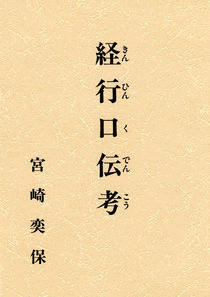 経行口伝考
きんひんくでんこう
宮崎奕保